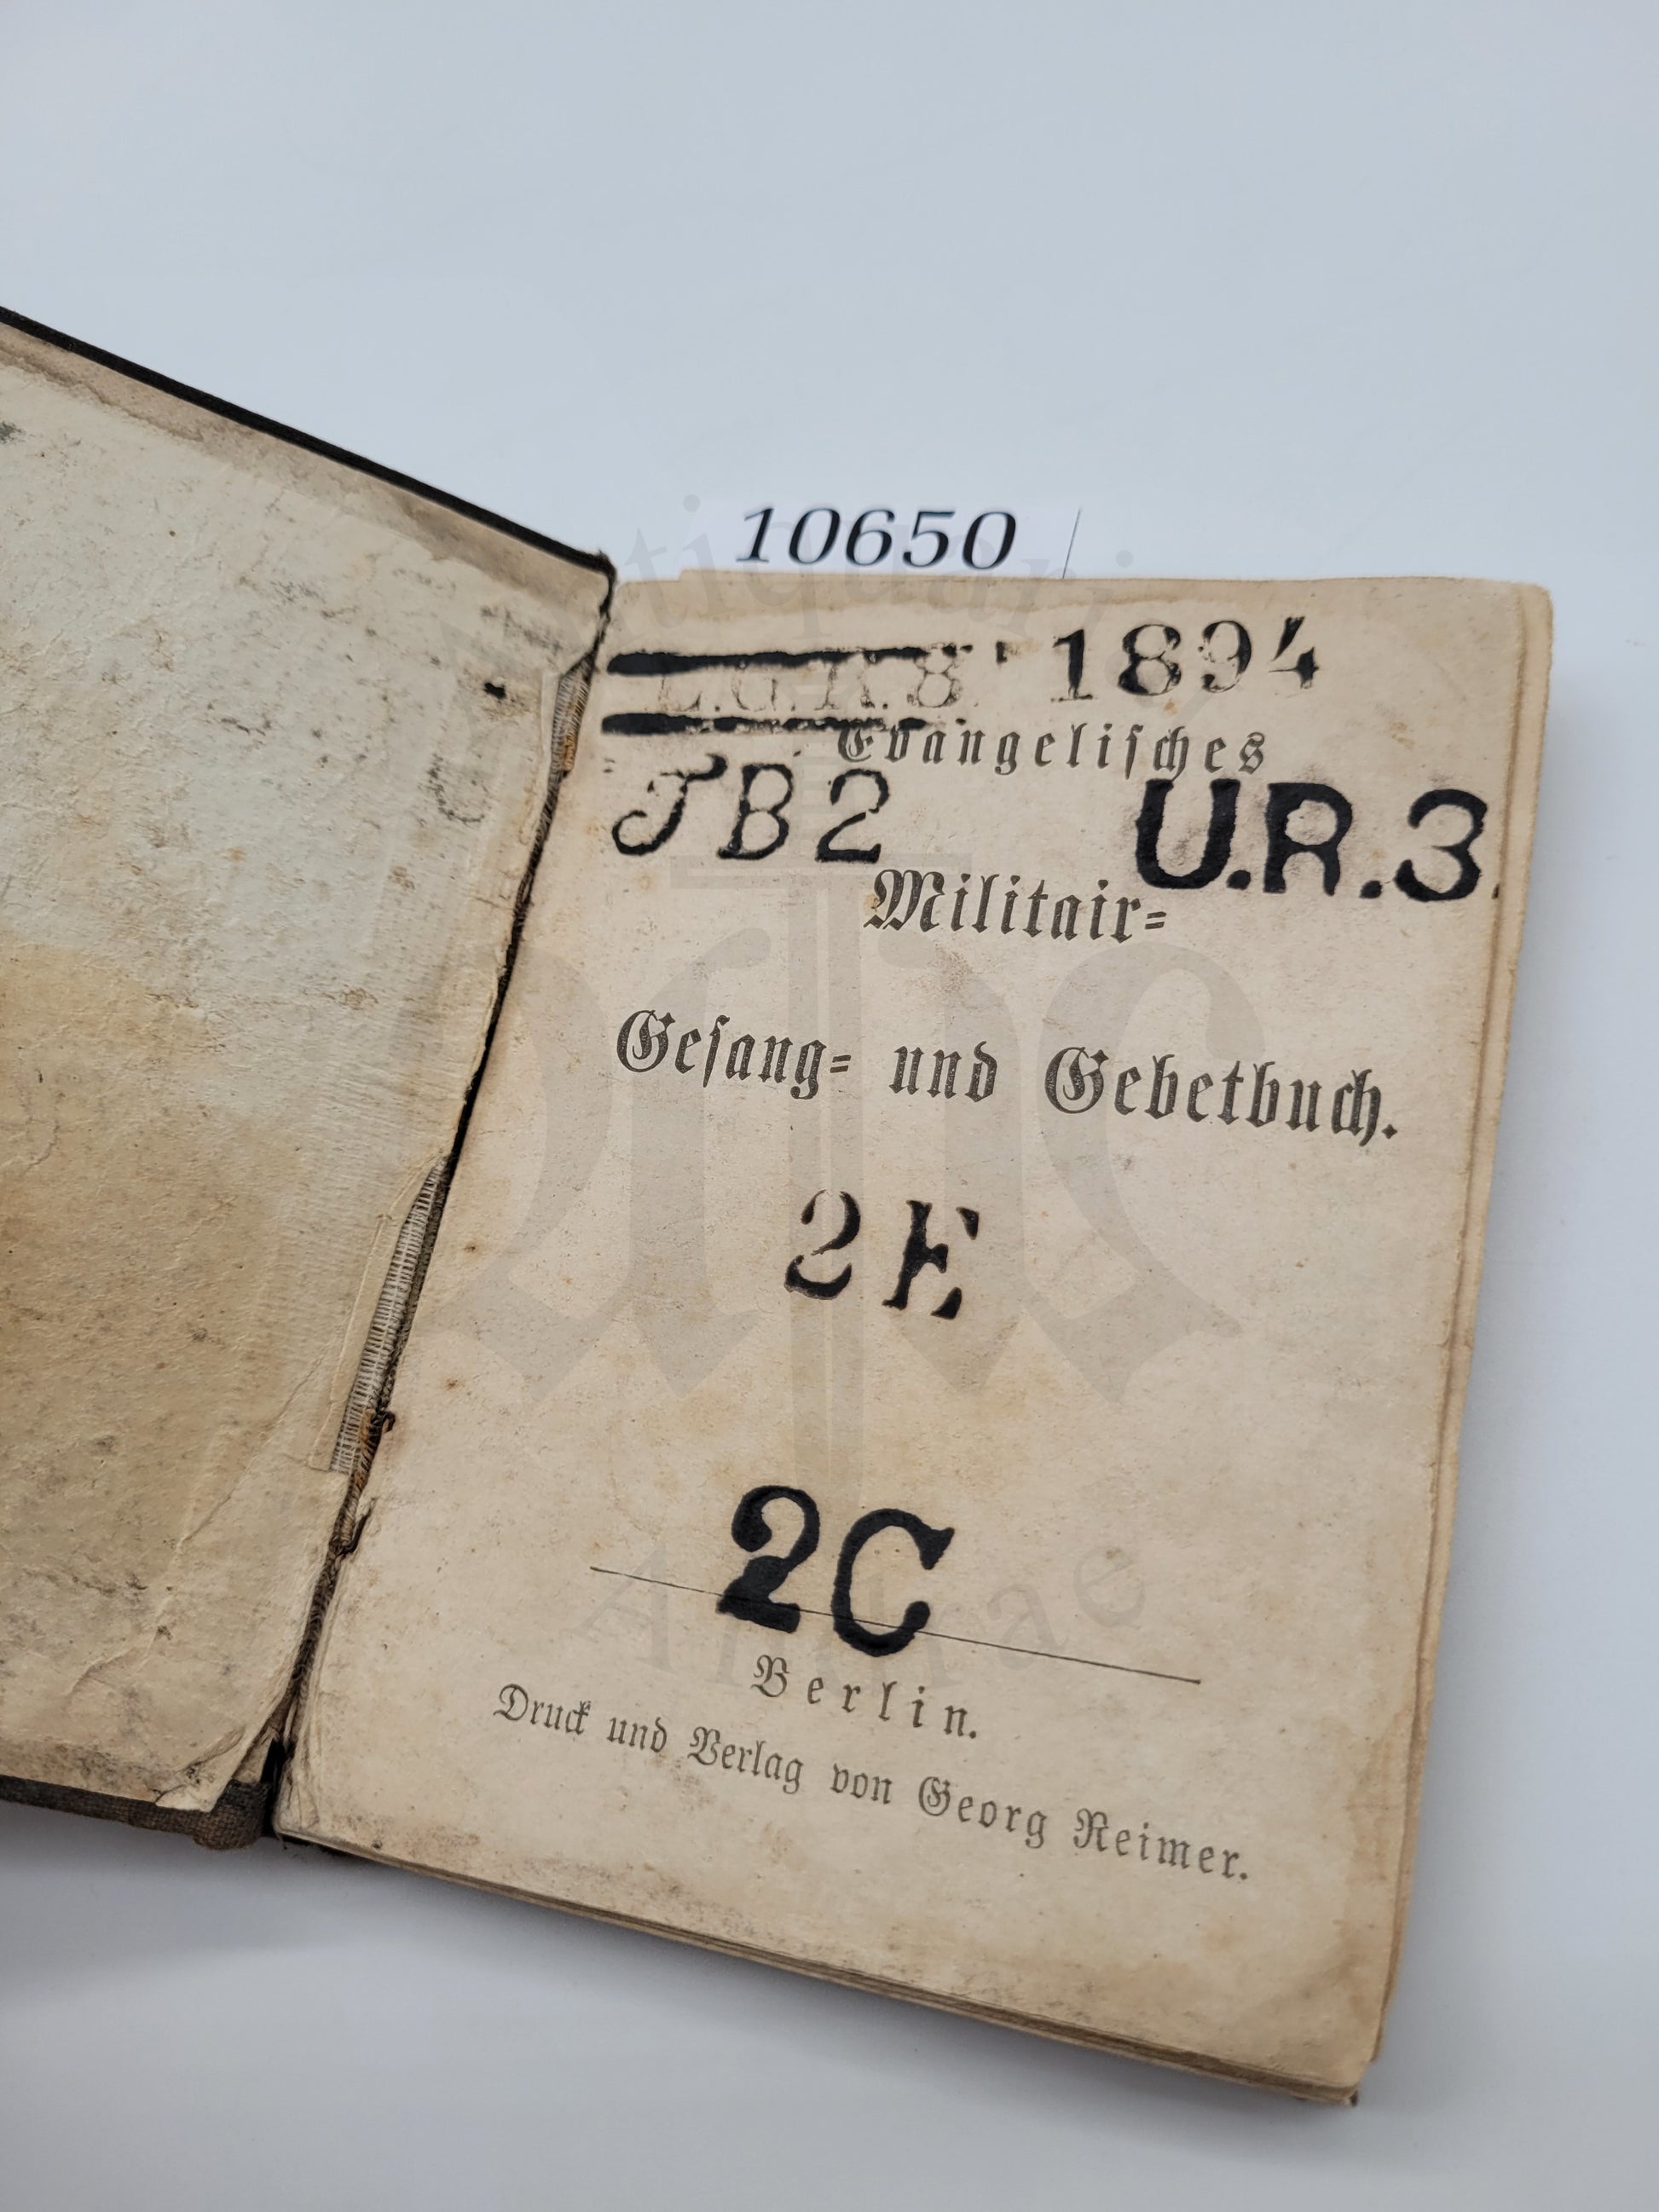 10650
1894
Evangelisches
J B 2 U.R.3.
Militair-
Gesang- und Gebetbuch.
2 E
2 C
Berlin.
Druck und Verlag von Georg Reimer.